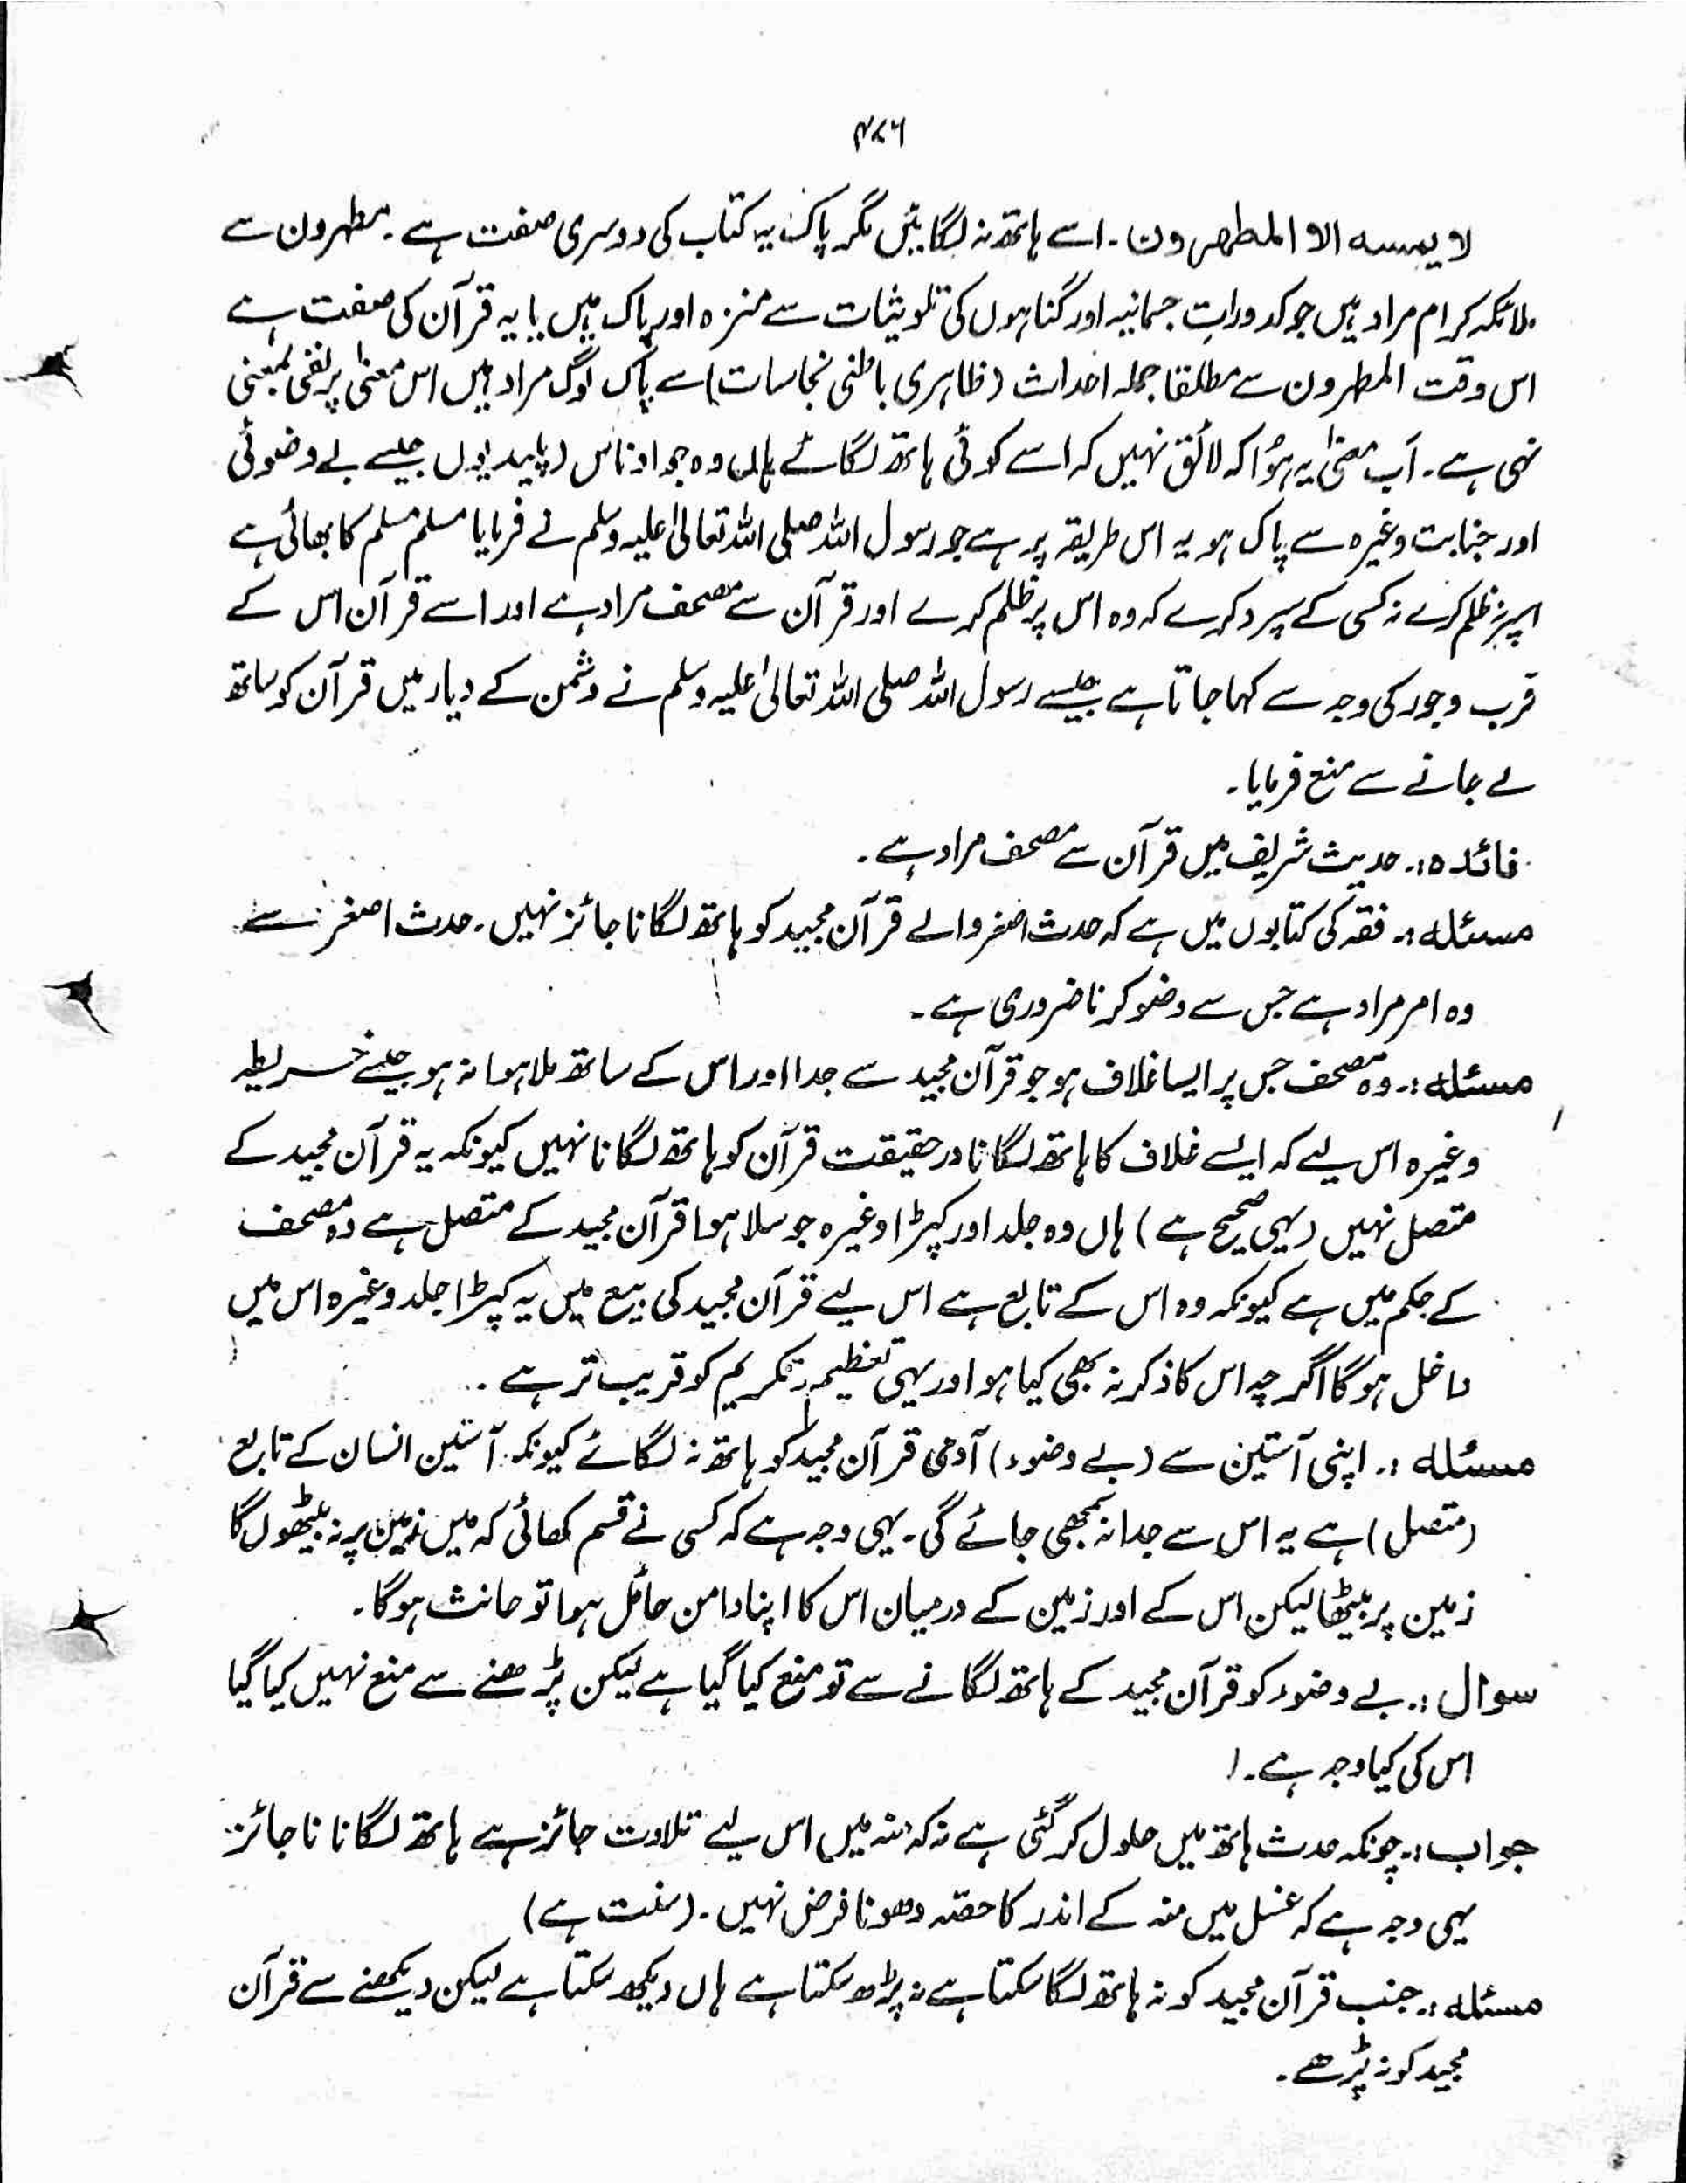 ۴۷۶
لا یمسہ الا المطھرون۔ اسے ہاتھ نہ لگائیں مگر پاک یہ کتاب کی دوسری صفت ہے۔ مطہرون سے
ملائکہ کرام مراد ہیں جو کدوراتِ جسمانیہ اور گناہوں کی تلویثات سے منزہ اور پاک ہیں یا یہ قرآن کی صفت ہے
اس وقت المطہرون سے مطلقا جملہ احداث (ظاہری باطنی نجاسات) سے پاک لوگ مراد ہیں اس معنیٰ پر نفی بمعنی
نہی ہے۔ اب معنیٰ یہ ہُوا کہ لائق نہیں کہ اسے کوئی ہاتھ لگائے ہاں وہ جو ادناس (پلیدیوں جیسے بے وضوئی
اور جنابت وغیرہ سے پاک ہو یہ اس طریقہ پر ہے جو رسول اللہ صلی اللہ تعالیٰ علیہ وسلم نے فرمایا مسلم مسلم کا بھائی ہے
اس پر نہ ظلم کرے نہ کسی کے سپرد کرے کہ وہ اس پر ظلم کرے اور قرآن سے مصحف مراد ہے اور اسے قرآن اس کے
قرب وجود کی وجہ سے کہا جاتا ہے جیسے رسول اللہ صلی اللہ تعالیٰ علیہ وسلم نے دشمن کے دیار میں قرآن کو ساتھ
لے جانے سے منع فرمایا۔
فائدہ:۔ حدیث شریف میں قرآن سے مصحف مراد ہے۔
مسئلہ:۔ فقہ کی کتابوں میں ہے کہ حدث اصغر والے قرآن مجید کو ہاتھ لگانا جائز نہیں۔ حدث اصغر سے
وہ امر مراد ہے جس سے وضو کرنا ضروری ہے۔
مسئلہ:۔ وہ مصحف جس پر ایسا غلاف ہو جو قرآن مجید سے جدا اور اس کے ساتھ ملا ہوا نہ ہو جیسے خریطہ
وغیرہ اس لیے کہ ایسے غلاف کا ہاتھ لگانا درحقیقت قرآن کو ہاتھ لگانا نہیں کیونکہ یہ قرآن مجید کے
متصل نہیں (یہی صحیح ہے) ہاں وہ جلد اور کپڑا وغیرہ جو سلا ہوا قرآن مجید کے متصل ہے وہ مصحف
کے حکم میں ہے کیونکہ وہ اس کے تابع ہے اس لیے قرآن مجید کی بیع میں یہ کپڑا جلد وغیرہ اس میں
داخل ہوگا اگرچہ اس کا ذکر نہ بھی کیا ہو اور یہی تعظیم و تکریم کو قریب تر ہے۔
مسئلہ:۔ اپنی آستین سے (بے وضوء) آدمی قرآن مجید کو ہاتھ نہ لگائے کیونکہ آستین انسان کے تابع
(متصل) ہے یہ اس سے جدا نہ سمجھی جائے گی۔ یہی وجہ ہے کہ کسی نے قسم کھائی کہ میں زمین پر نہ بیٹھوں گا
زمین پر بیٹھا لیکن اس کے اور زمین کے درمیان اس کا اپنا دامن حائل ہوا تو حانث ہوگا۔
سوال:۔ بے وضوء کو قرآن مجید کے ہاتھ لگانے سے تو منع کیا گیا ہے لیکن پڑھنے سے منع نہیں کیا گیا
اس کی کیا وجہ ہے۔ا
جواب:۔ چونکہ حدث ہاتھ میں حلول کر گئی ہے نہ کہ منہ میں اس لیے تلاوت جائز ہے ہاتھ لگانا ناجائز
یہی وجہ ہے کہ غسل میں منہ کے اندر کا حصّہ دھونا فرض نہیں۔ (سنت ہے)
مسئلہ:۔ جنب قرآن مجید کو نہ ہاتھ لگا سکتا ہے نہ پڑھ سکتا ہے ہاں دیکھ سکتا ہے لیکن دیکھنے سے قرآن
مجید کو نہ پڑھے۔